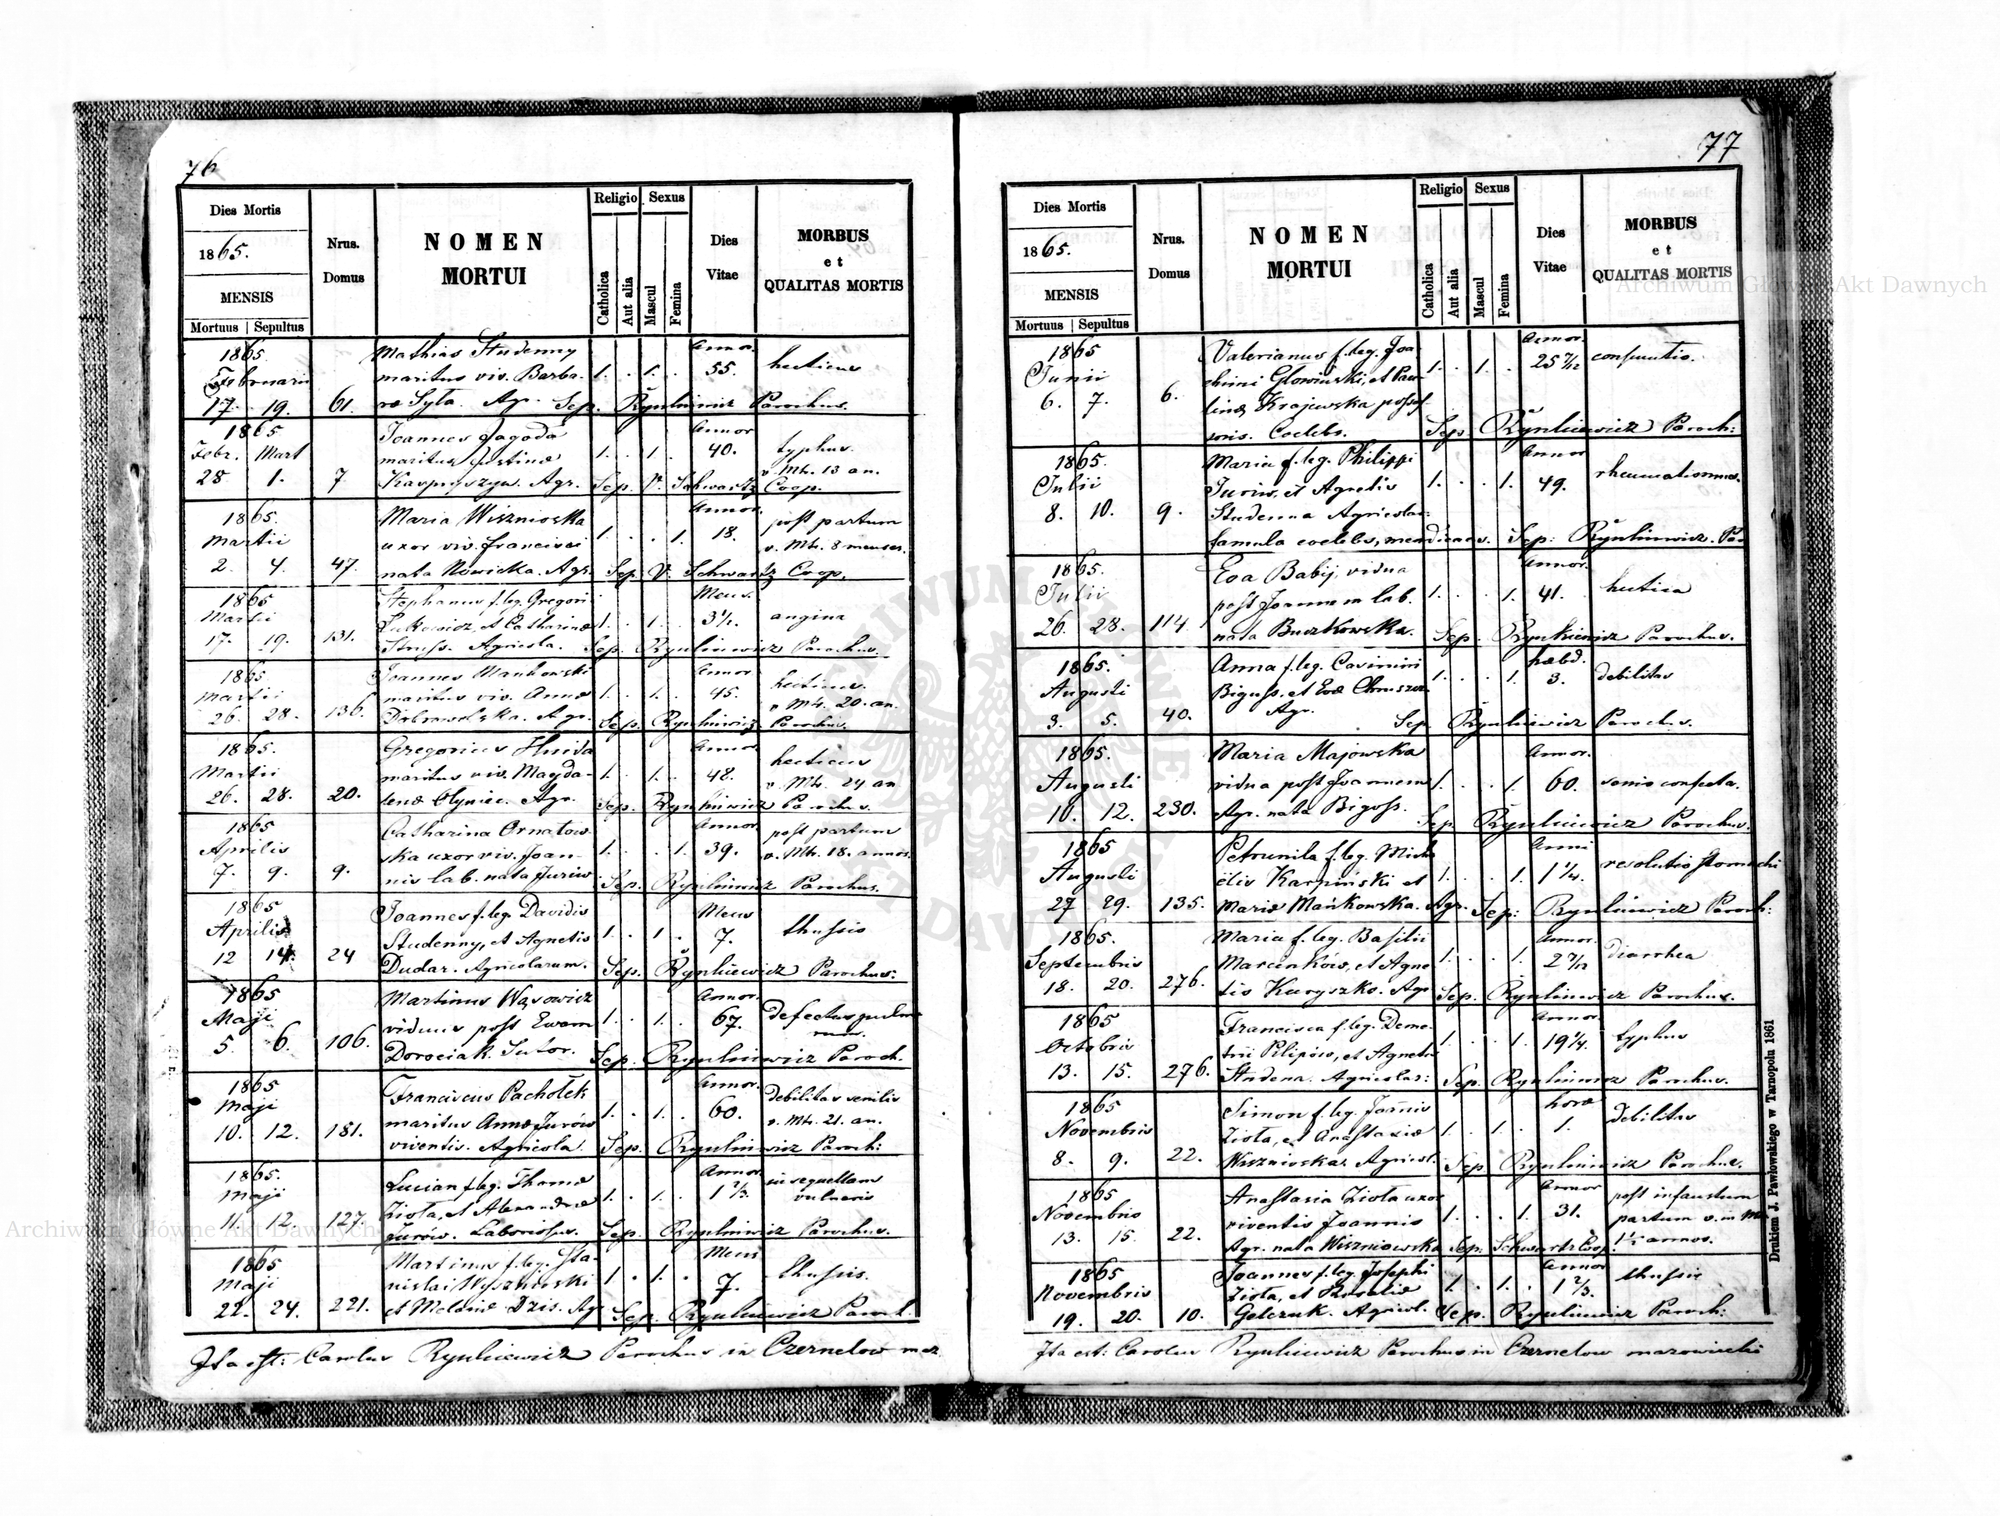 76
Dies Mortis
1865.
MENSIS
Mortuus | Sepultus
Nrus.
Domus
NOMEN
MORTUI
Religio
Catholica
Aut alia
Sexus
Mascul
Femina
Dies
Vitae
MORBUS
et
QUALITAS MORTIS
1865 Mathias Studenny Annor.
Februarii maritus viv. Barba- 1. . 1. . 55. hecticus
17. 19. 61. ræ Syta. Agr. Sep. Rynkiewicz Parochus.
1865 Joannes Jagoda Annor
Febr. Mart maritus Justinæ 1. . 1. . 40. typhus.
28 1. 7 Karpyszyn. Agr. v. Mtr. 13 an.
Sep. V. Schwartz Coop.
1865. Maria Wisznioska Annor. post partum
Martii uxor viv. Francisci 1. . . 1. 18. v. Mtr. 8 menses.
2. 4. 47. nata Nowicka. Agr. Sep. V. Schwartz Coop.
1865 Stephanus f. leg. Gregorii Mens.
Martii Lukowicz, et Catharinæ 1. . 1. . 3½. angina
17. 19. 131. Struss. Agricola. Sep. Rynkiewicz Parochus.
1865. Joannes Mankowski Annor hecticus.
Martii maritus viv. Annæ 1. . 1. . 45. v. Mtr. 20. an.
26. 28. 136. Dabrowolska. Agr. Sep. Rynkiewicz Parochus.
1865. Gregorius Hnida Annor. hecticus
Martii maritus viv. Magda- 1. . 1. . 48. v. Mtr. 24 an
26. 28. 20. lenæ Olyniec. Agr. Sep. Rynkiewicz Parochus.
1865 Catharina Ornatow- Annor. post partum
Aprilis ska uxor viv. Joan- 1. . . 1. 39. v. Mtr. 18. annos.
7. 9. 9. nis lab. nata Juriw Sep. Rynkiewicz Parochus.
1865 Joannes f. leg. Davidis Mens
Aprilis Studenny, et Agnetis 1. . 1. . 7. thussis
12 14. 24 Dudar. Agricolarum. Sep. Rynkiewicz Parochus:
1865 Martinus Wąsowicz Annor.
Maji viduus post Evam 1. . 1. . 67. defectus pulmo
rum.
5. 6. 106. Dorociak. Sutor. Sep. Rynkiewicz Paroch.
1865 Franciscus Pachołek Annor. debilitas senilis
Maji maritus Annæ Jurów 1. . 1. . 60. v. Mtr. 21. an.
10. 12. 181. viventis. Agricola. Sep. Rynkiewicz Paroch:
1865. Lucian f. leg. Thomæ Annor. in sequellam
Maji Zioła, et Alexandræ 1. . 1. . 1 2/3. vulneris
11. 12. 127. Jurów. Laboriosus. Sep. Rynkiewicz Parochus.
1865 Martinus f. leg. Sta- Mens
Maji nislai Wyszniowski 1. . 1. . 7. thussis.
22. 24. 221. et Melaniæ Dzis. Ag Sep. Rynkiewicz Paroch.
Ita est: Carolus Rynkiewicz Parochus in Czernelow maz
77
Dies Mortis
1865.
MENSIS
Mortuus | Sepultus
Nrus.
Domus
NOMEN
MORTUI
Religio
Catholica
Aut alia
Sexus
Mascul
Femina
Dies
Vitae
MORBUS
et
QUALITAS MORTIS
1865 Valerianus f. leg. Joa- Annor.
Junii chimi Głowiński, et Pau- 1. . 1. . 25 7/12 consumtio.
6. 7. 6. linæ Krajewska posses-
soris. Coelebs. Sep. Rynkiewicz Paroch:
1865. Maria f. leg. Philippi Annor
Julii Juriw, et Agnetis 1. . . 1. 49. rheumatismus.
8. 10. 9. Studenna Agricolar:
famula coelebs, mendicans. Sep: Rynkiewicz. Par
1865. Eva Babij, vidua Annor.
Julii post Joannem lab. 1. . . 1. 41. hectica
26. 28. 114 nata Buczkowska. Sep. Rynkiewicz Parochus.
1865. Anna f. leg. Casimiri hæbd.
Augusti Biguss. et Evæ 1. . . 1. 3. debilitas
3. 5. 40. Agr. Sep Rynkiewicz Parochus.
1865. Maria Majowska Annor.
Augusti vidua post Joannem 1. . . 1. 60. senio confecta.
10. 12. 230. Agr. nata Bigoss. Sep. Rynkiewicz Parochus.
1865 Petrunila f. leg. Micha Anni
Augusti ëlis Karpinski et 1. . . 1. 1¼. resolutio stomachi
27 29. 135. Mariæ Mańkowska. Agr. Sep: Rynkiewicz Paroch:
1865. Maria f. leg. Basilii Annor.
Septembris Marcinków, et Agne 1. . . 1. 2 7/12 diarrhea
18. 20. 276. tis Kuryszko. Agr Sep. Rynkiewicz Parochus.
1865 Francisca f. leg. Deme- Annor.
Octobris trii Pilipow, et Agnetis 1. . . 1. 19¼. typhus
13. 15. 276. Studena. Agricolar: Sep. Rynkiewicz Parochus.
1865 Simon f. leg. Joannis horæ
Novembris Zioła, et Anastasiæ 1. . 1. . 1. debilitas
8. 9. 22. Wisznioska. Agricol. Sep. Rynkiewicz Parochus.
1865 Anastasia Zioła uxor Annor post infaustum
Novembris viventis Joannis 1. . . 1. 31. partum v. in M
13. 15. 22. Agr. nata Wiszniowska Sep. Schwartz Coop. 1½ annos.
1865 Joannes f. leg. Josephi Annor
Novembris Zioła, et Rosaliæ 1. . 1. . 1 2/3. thussis
19. 20. 10. Golczuk. Agricol. Sep. Rynkiewicz Paroch:
Ita est: Carolus Rynkiewicz Parochus in Czernelow mazowiecki
Drukiem J. Pawłowskiego w Tarnopolu 1861
Archiwum Główne Akt Dawnych
Archiwum Główne Akt Dawnych
ARCHIWUM GŁÓWNE AKT DAWNYCH